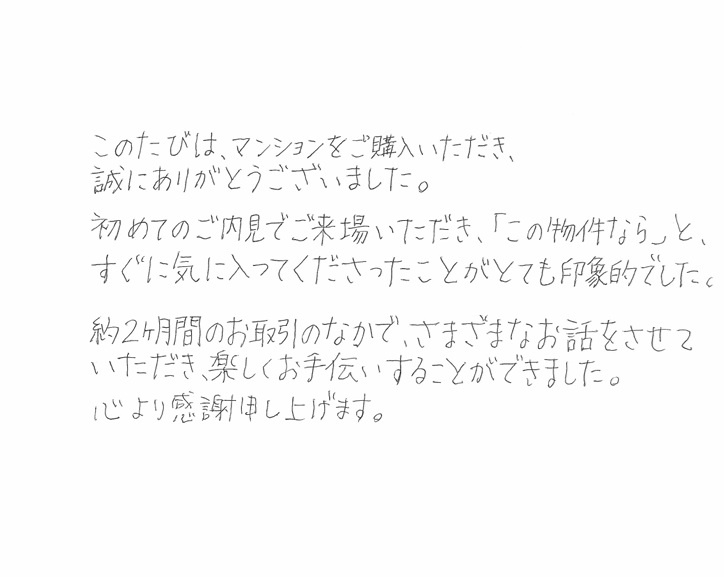 このたびは、マンションをご購入いただき、
誠にありがとうございました。
初めてのご内見でご来場いただき、「この物件なら」と、
すぐに気に入ってくださったことがとても印象的でした。
約2ヶ月間のお取引のなかで、さまざまなお話をさせて
いただき、楽しくお手伝いすることができました。
心より感謝申し上げます。